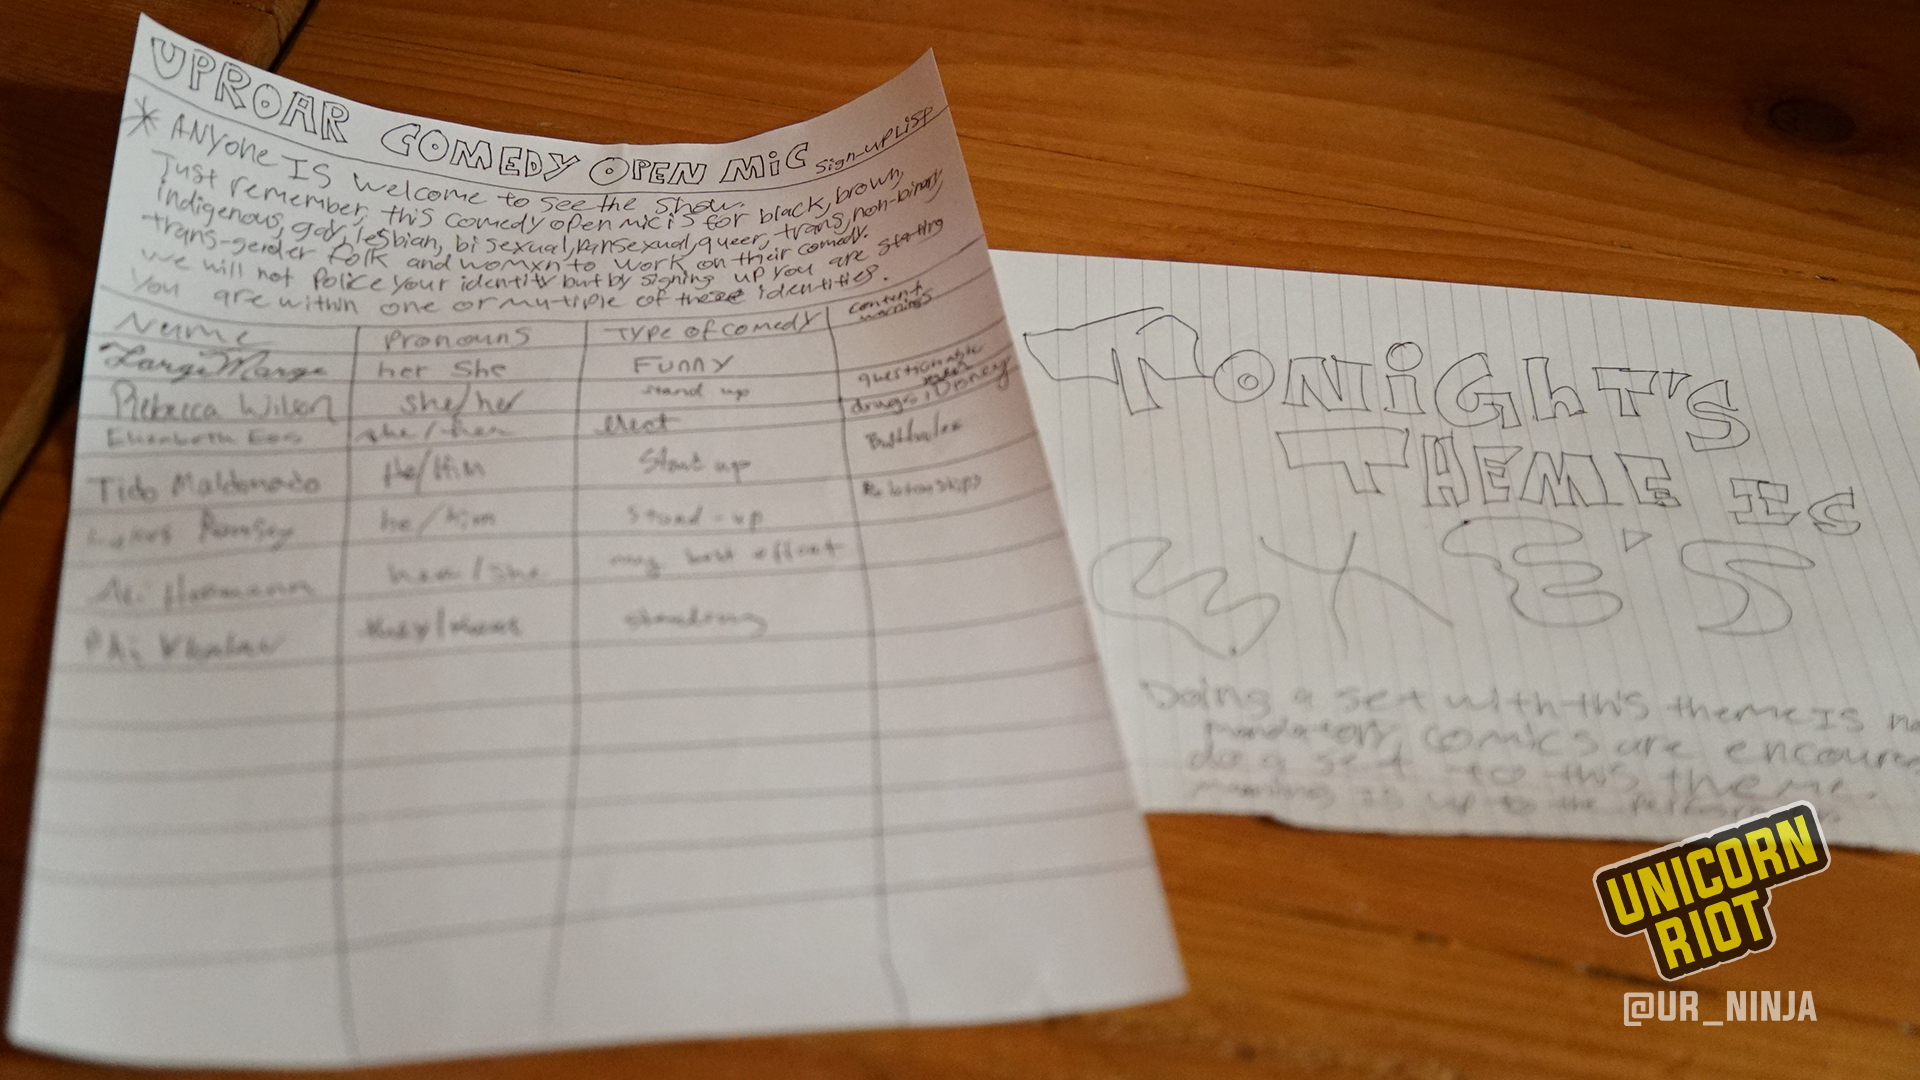 UPROAR COMEDY OPEN MiC Sign-up LiST
* ANYONE IS welcome to see the show.
Just remember, this comedy open mic is for black, brown,
indigenous, gay, lesbian, bisexual, pansexual, queer, trans, non-binary,
trans-gender folk and womxn to work on their comedy.
we will not police your identity but by signing up you are stating
You are within one or multiple of these identities.
Name Pronouns Type of comedy content warnings
Large Marge her she Funny questionable
Rebecca Wilson she/her stand up drugs, Disney
Elizabeth she/her erect Buttholes
Tido Maldonado He/Him Stand up Relationships
Ramsey he/him Stand-up
Ali Hermann her/she my best effort
they/them standing
TONiGhT'S
THEME IS
EX'S
Doing a set with this theme Is no
mandatory, comics are encourag
do a set to this theme.
meaning is up to the performer.
UNICORN
RIOT
@UR_NINJA